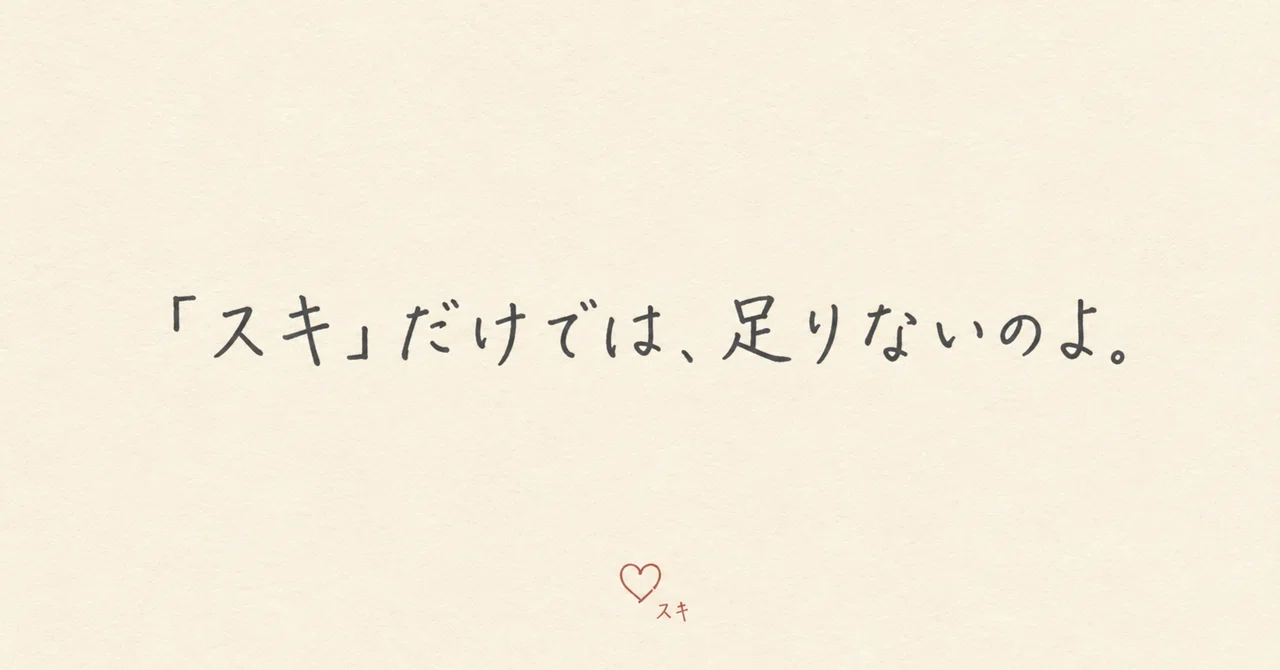 「スキ」だけでは、足りないのよ。
スキ